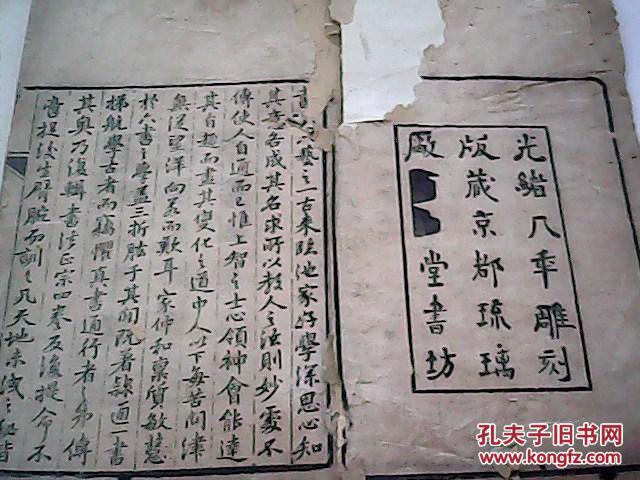 光緒八年雕刻
版藏京都琉璃
厰堂書坊
書六藝之一古來臨池家好學深思心知
其意各成其名求所以教人之法則妙處不
傳使人自通而已惟上智之士心領神會能達
其自趣而盡其變化之道中人以下每苦問津
無從望洋向若而歎耳家仲和稟質敏慧
於六書之學蓋三折肱于其間既著隸通一書
梯航學古者而竊懼真書通行者之弗傳
其奥乃復輯書法正宗四卷反復提命不
啻提後生臂腕而訓之凡天地未洩之秘皆
孔夫子旧书网
KONGFZ.COM